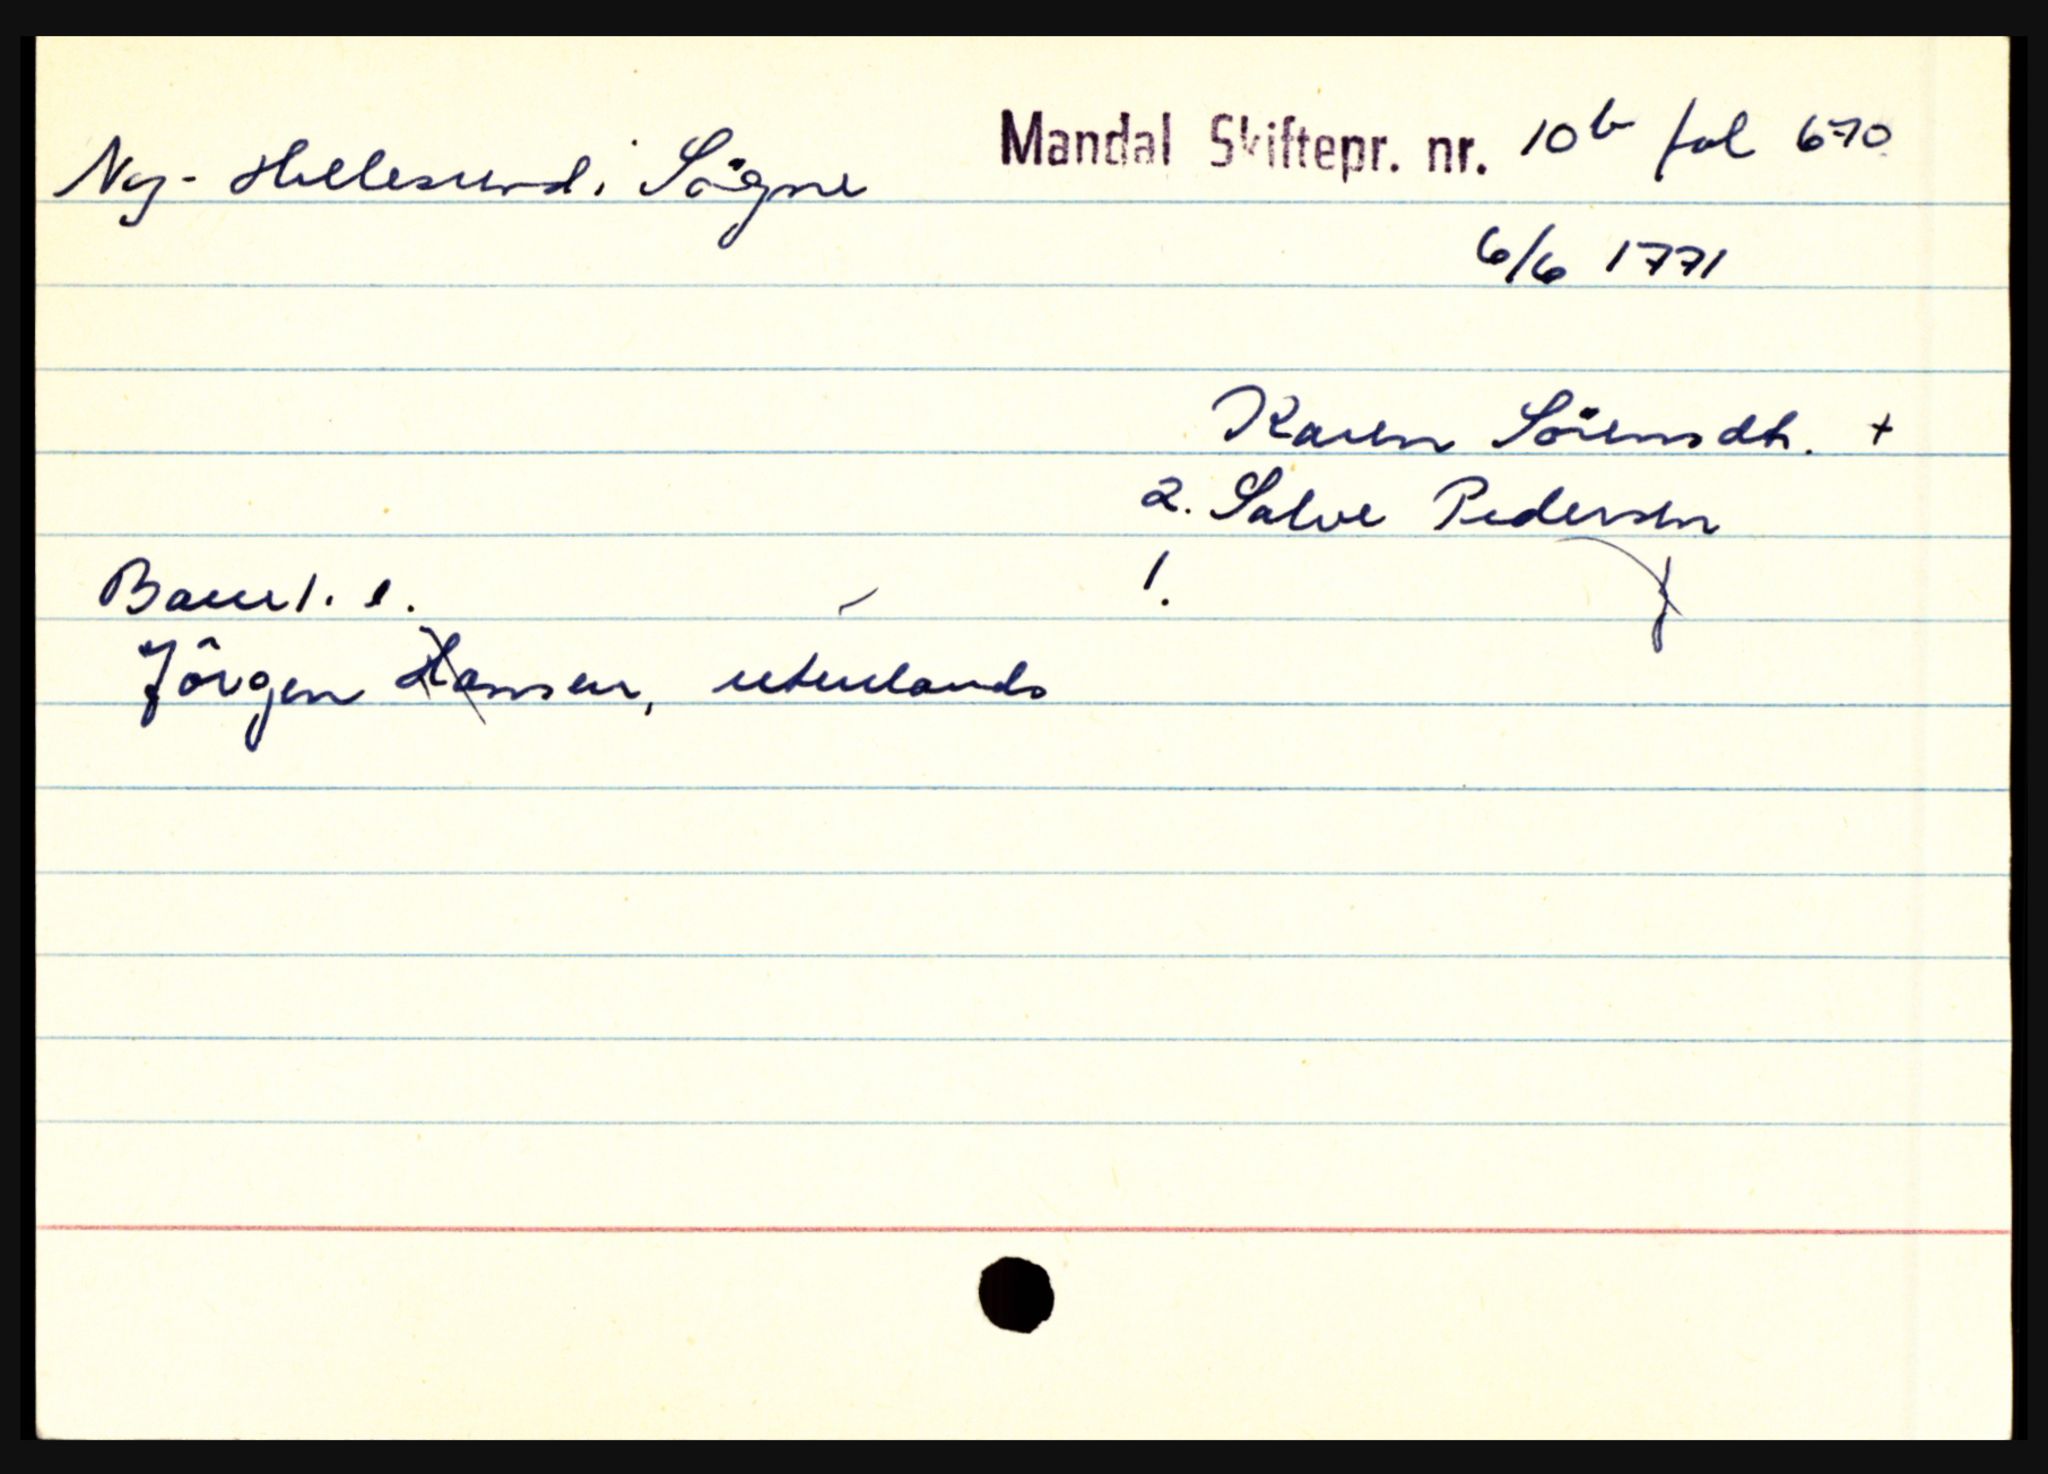 Ny-Hellesund, Sögne
Mandal Skiftepr. nr. 10b fol 670
6/6 1771
Karen Sörensdt. +
2. Salve Pedersen
Barn 1. e. 1.
Jörgen Hansen, utenlands